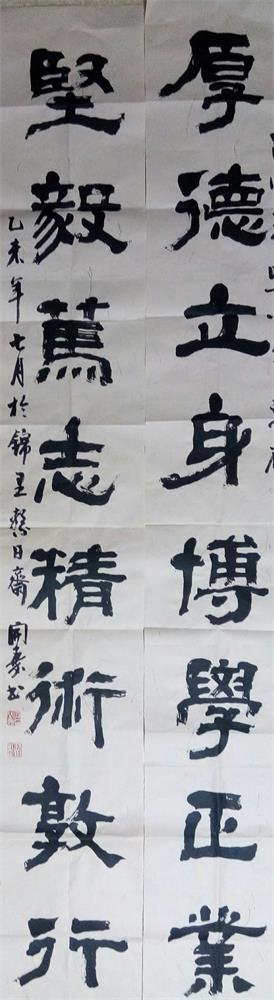 厚德立身博學正業
堅毅篤志精術敦行
乙未年七月於錦里